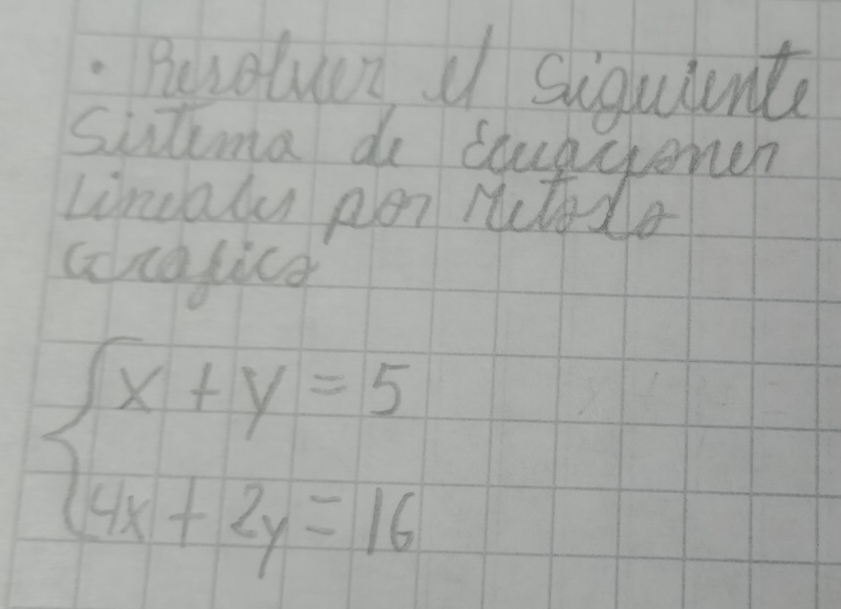 • Resolver el siguiente
Sistema de Ecuaciones
Lineales por Metodo
Grafico
x + y = 5
4x + 2y = 16